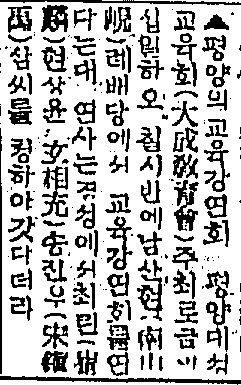 ▲평양의교육강연회 평양대성
교육회(大成敎育會)주최로금이
십일하오 칠시반에남산현(南山
峴)례배당에서 교육강연회를연
다는대 연사는경성에서최린(崔
麟)현상윤(玄相允)송진우(宋鎭
禹)삼씨를 청하야갓다더라